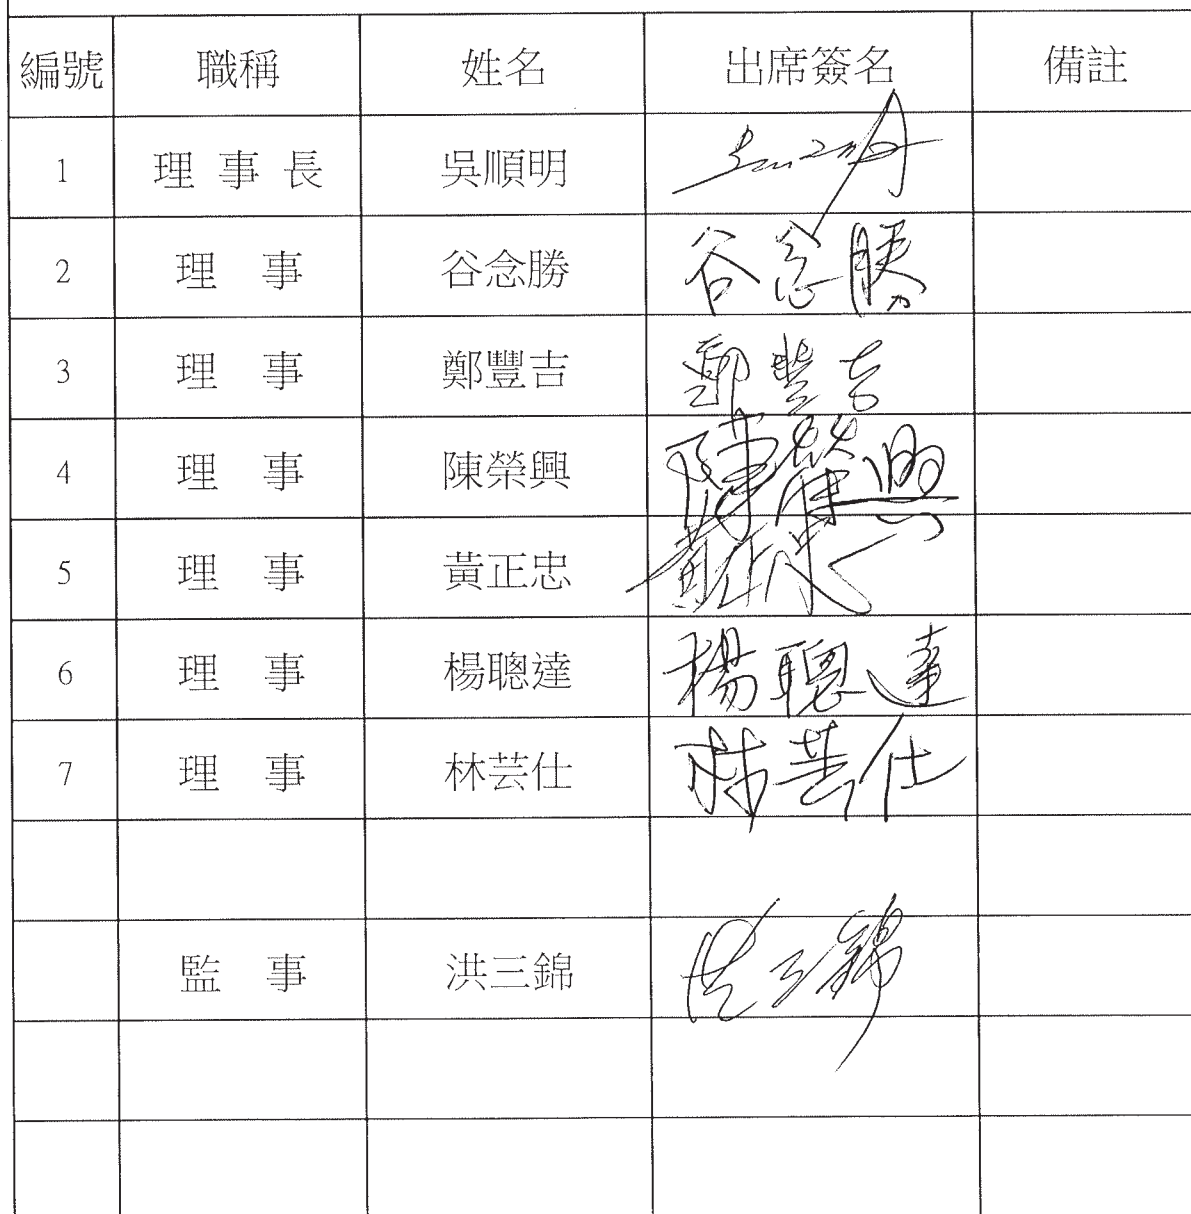 編號 職稱 姓名 出席簽名 備註
1 理事長 吳順明
2 理事 谷念勝 谷念勝
3 理事 鄭豐吉 鄭豐吉
4 理事 陳榮興 陳榮興
5 理事 黃正忠 黃正忠
6 理事 楊聰達 楊聰達
7 理事 林芸仕 林芸仕
監事 洪三錦 洪三錦